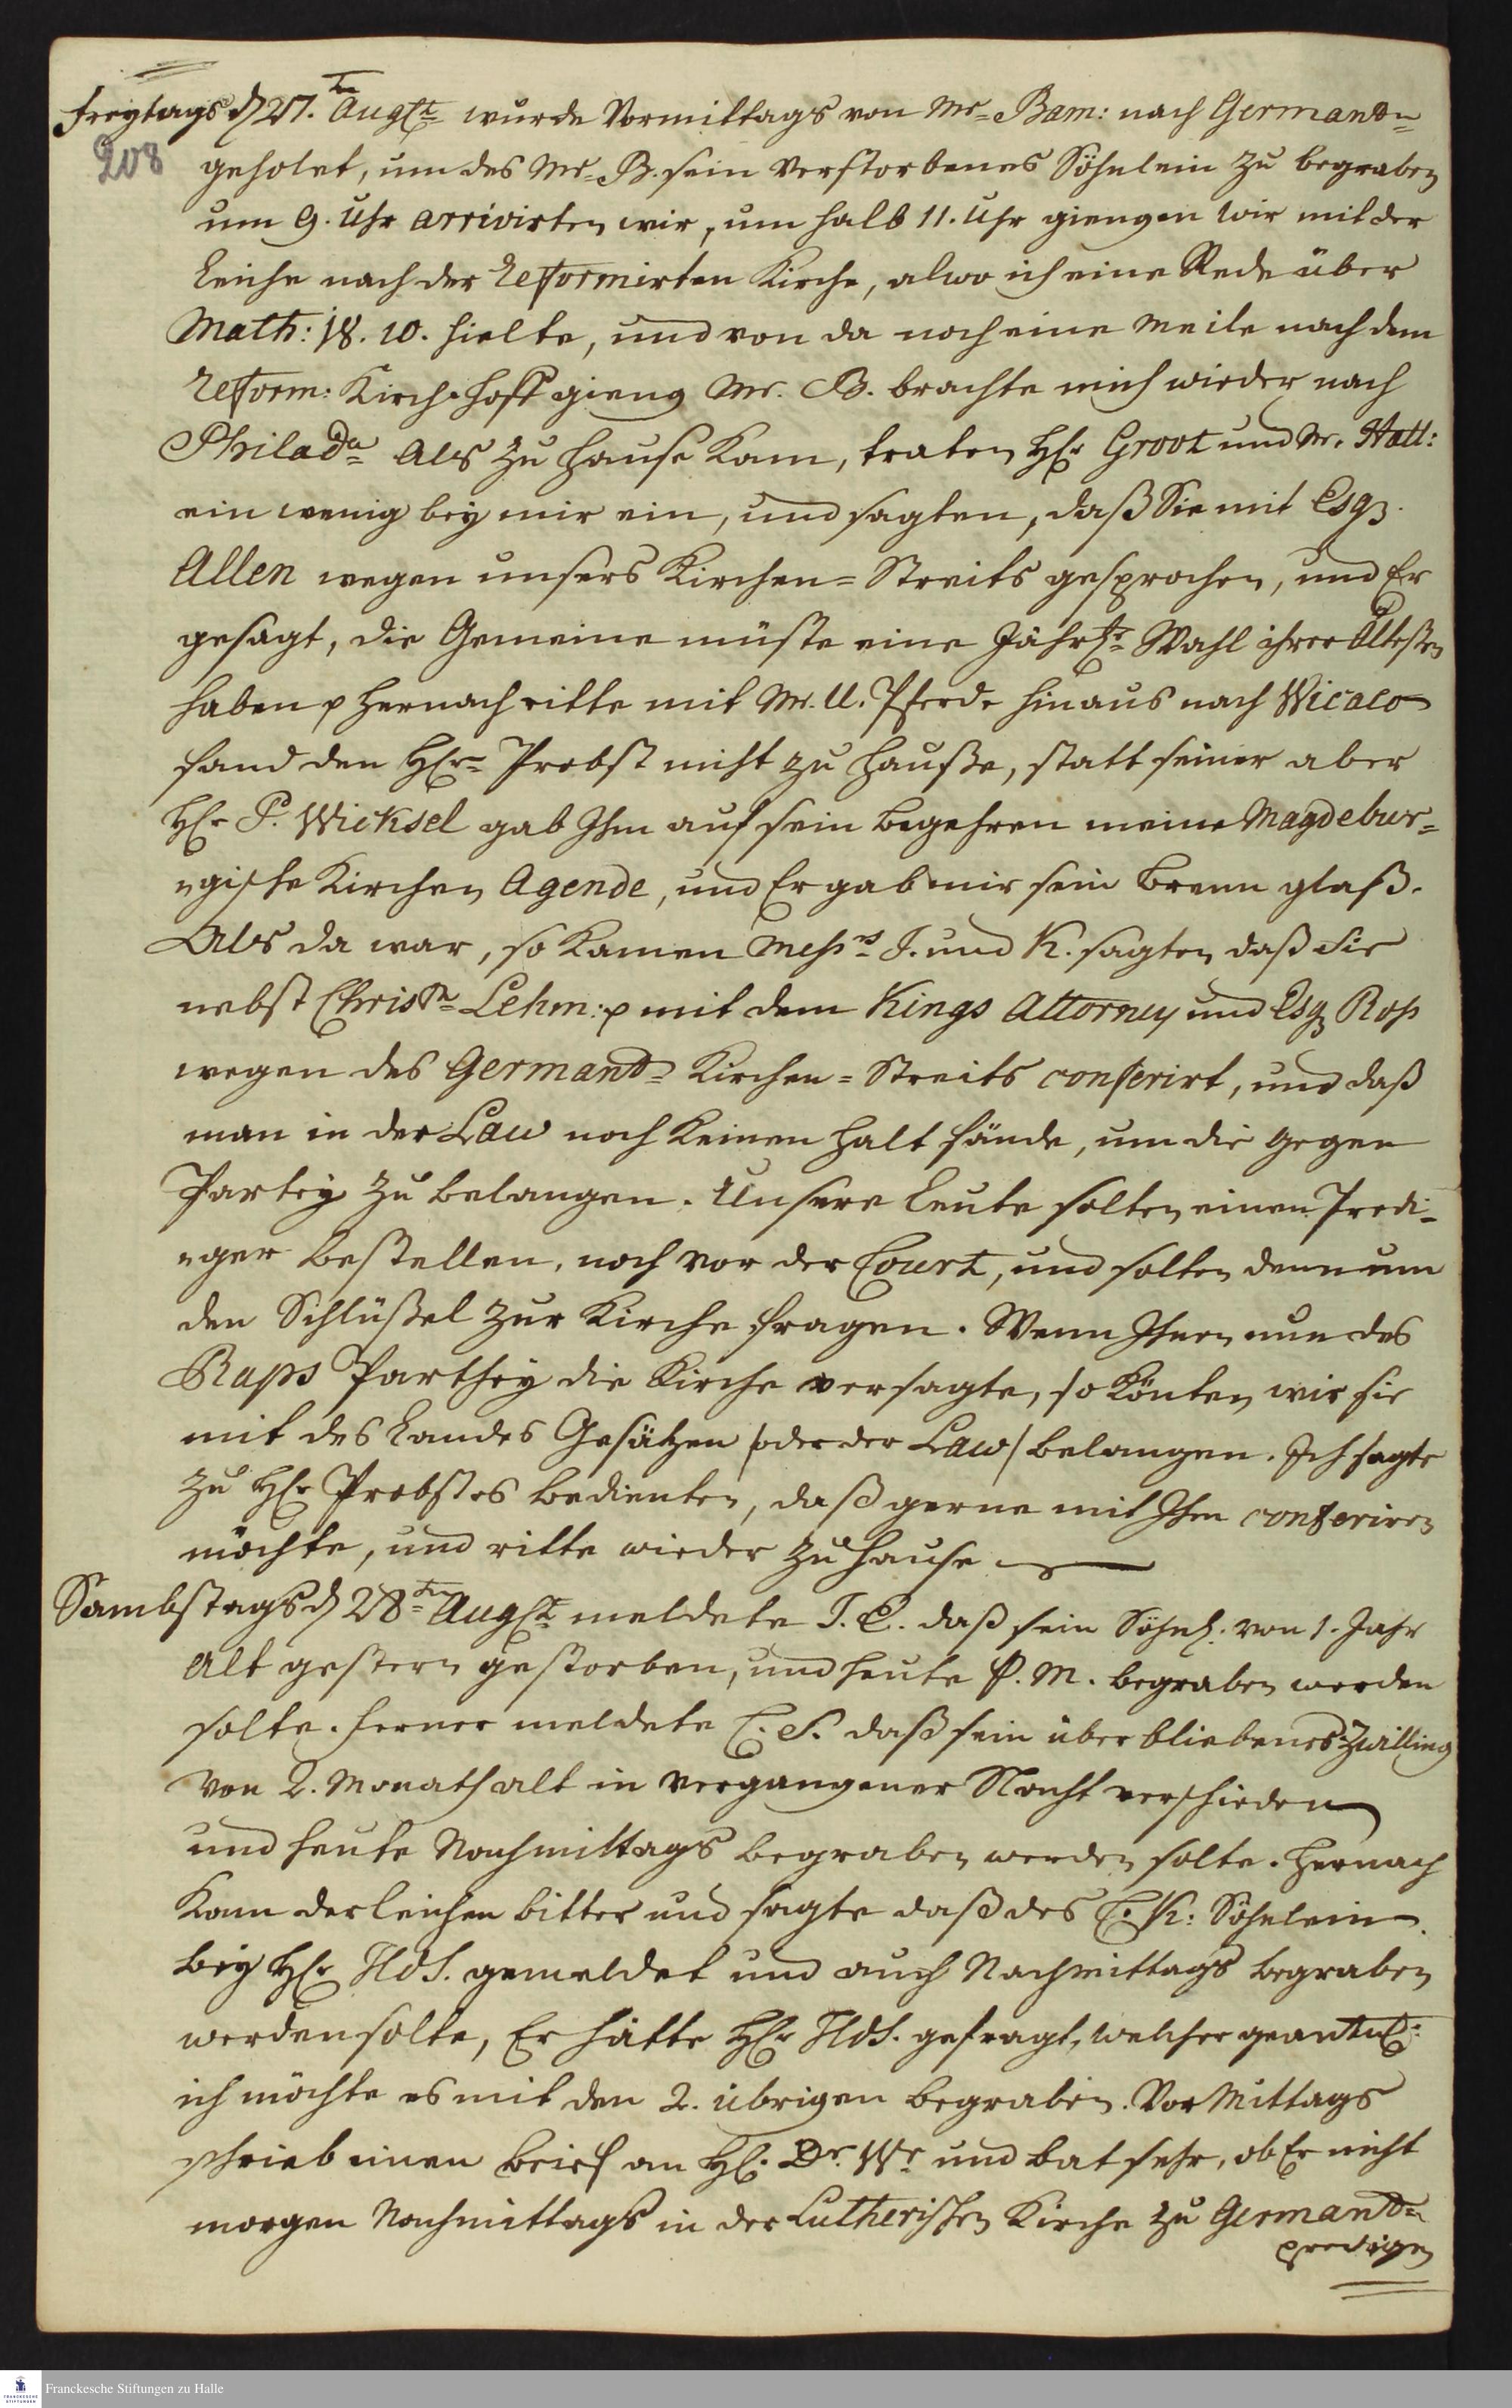 Freytags d 27.ten Augst wurde Vormittags von Mr Bam: nach Germantn
208
geholet, um des Mr B. sein verstorbenes Söhnlein zu begraben
um 9. Uhr arrivirten wir, um halb 11. Uhr giengen wir mit der
Leiche nach der Reformirten Kirche, alwo ich eine Rede über
Math: 18. 10. hielte, und von da noch eine Meile nach dem
Reform: Kirch-hoff gieng Mr. B. brachte mich wieder nach
Philada Als zu Hause Kam, traten HEr Groot und Mr. Hall:
ein wenig bey mir ein, und sagten, daß Sie mit Esq.
Allen wegen unsers Kirchen=Streits gesprochen, und Er
gesagt, die Gemeine müste eine Jährl. Wahl ihrer Ältesten
haben p Hernach ritte mit Mr. U. Pferde hinaus nach Wicaco
fand den HErn Probst nicht zu Hauße, statt seiner aber
HEr P. Wicksel gab Ihm auf sein Begehren meine Magdebur=
=gische Kirchen Agende, und Er gab mir sein Brenn glaß.
Als da war, so Kamen Messrs J. und K. sagten daß Sie
nebst Christn Lehm: p mit dem Kings Attorney und Esq Ross
wegen des Germantn Kirchen=Streits conferirt, und daß
man in der Law noch Keinen Halt fände, um die Gegen
Partey zu belangen. Unsere Leute solten einen Predi=
=ger bestellen, noch vor der Court, und solten denn um
den Schlüßel zur Kirche fragen. Wenn Ihnen nun des
Raps Parthey die Kirche versagte, so Könten wir sie
mit des Landes Gesätzen /oder der Law/ belangen. Ich sagte
zu HEr Probstes Bedienten, daß gerne mit Ihm conferiren
möchte, und ritte wieder zu Hause
Sambstags d 28ten Augst meldete J. E. daß sein Söhnl: von 1. Jahr
Alt gestern gestorben, und heute P. M. begraben werden
solte. Ferner meldete C. S. daß sein überbliebenes Zwilling
von 2. Monath alt in vergangener Nacht verschieden
und heute Nachmittags begraben werden solte. Hernach
Kam der Leichen bitter und sagte daß des C. K: Söhnlein
bey HEr Hds. gemeldet und auch Nachmittags begraben
werden solte, Er hätte HEr Hds. gefragt, welcher geantw:
ich möchte es mit den 2. übrigen begraben. Vor Mittags
schrieb einen Brief an HE. Dr. Wr und bat sehr, ob Er nicht
morgen Nachmittags in der Lutherischen Kirche zu Germantn
predigen
Franckesche Stiftungen zu Halle